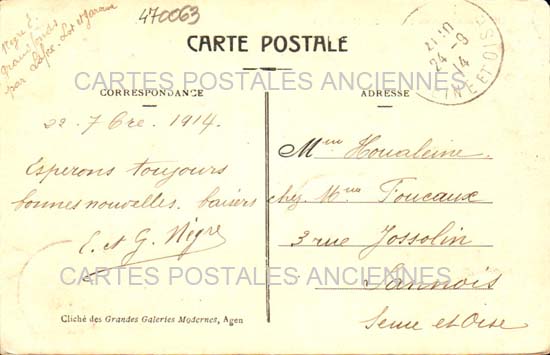 470063
Nègre E.
grand fonds
par
Lot et Garonne
CARTE POSTALE
CARTES POSTALES ANCIENNES
CORRESPONDANCE
ADRESSE
21-30
24-9
14
NE ET OISE
22. 7bre. 1914.
Esperons toujours
bonnes nouvelles. baisers
E. et G. Nègre
Mme Houaleine.
chez Mme Foucaux
3 rue Jossolin
Sannois
Seine et Oise
CARTES POSTALES ANCIENNES
Cliché des Grandes Galeries Modernes, Agen